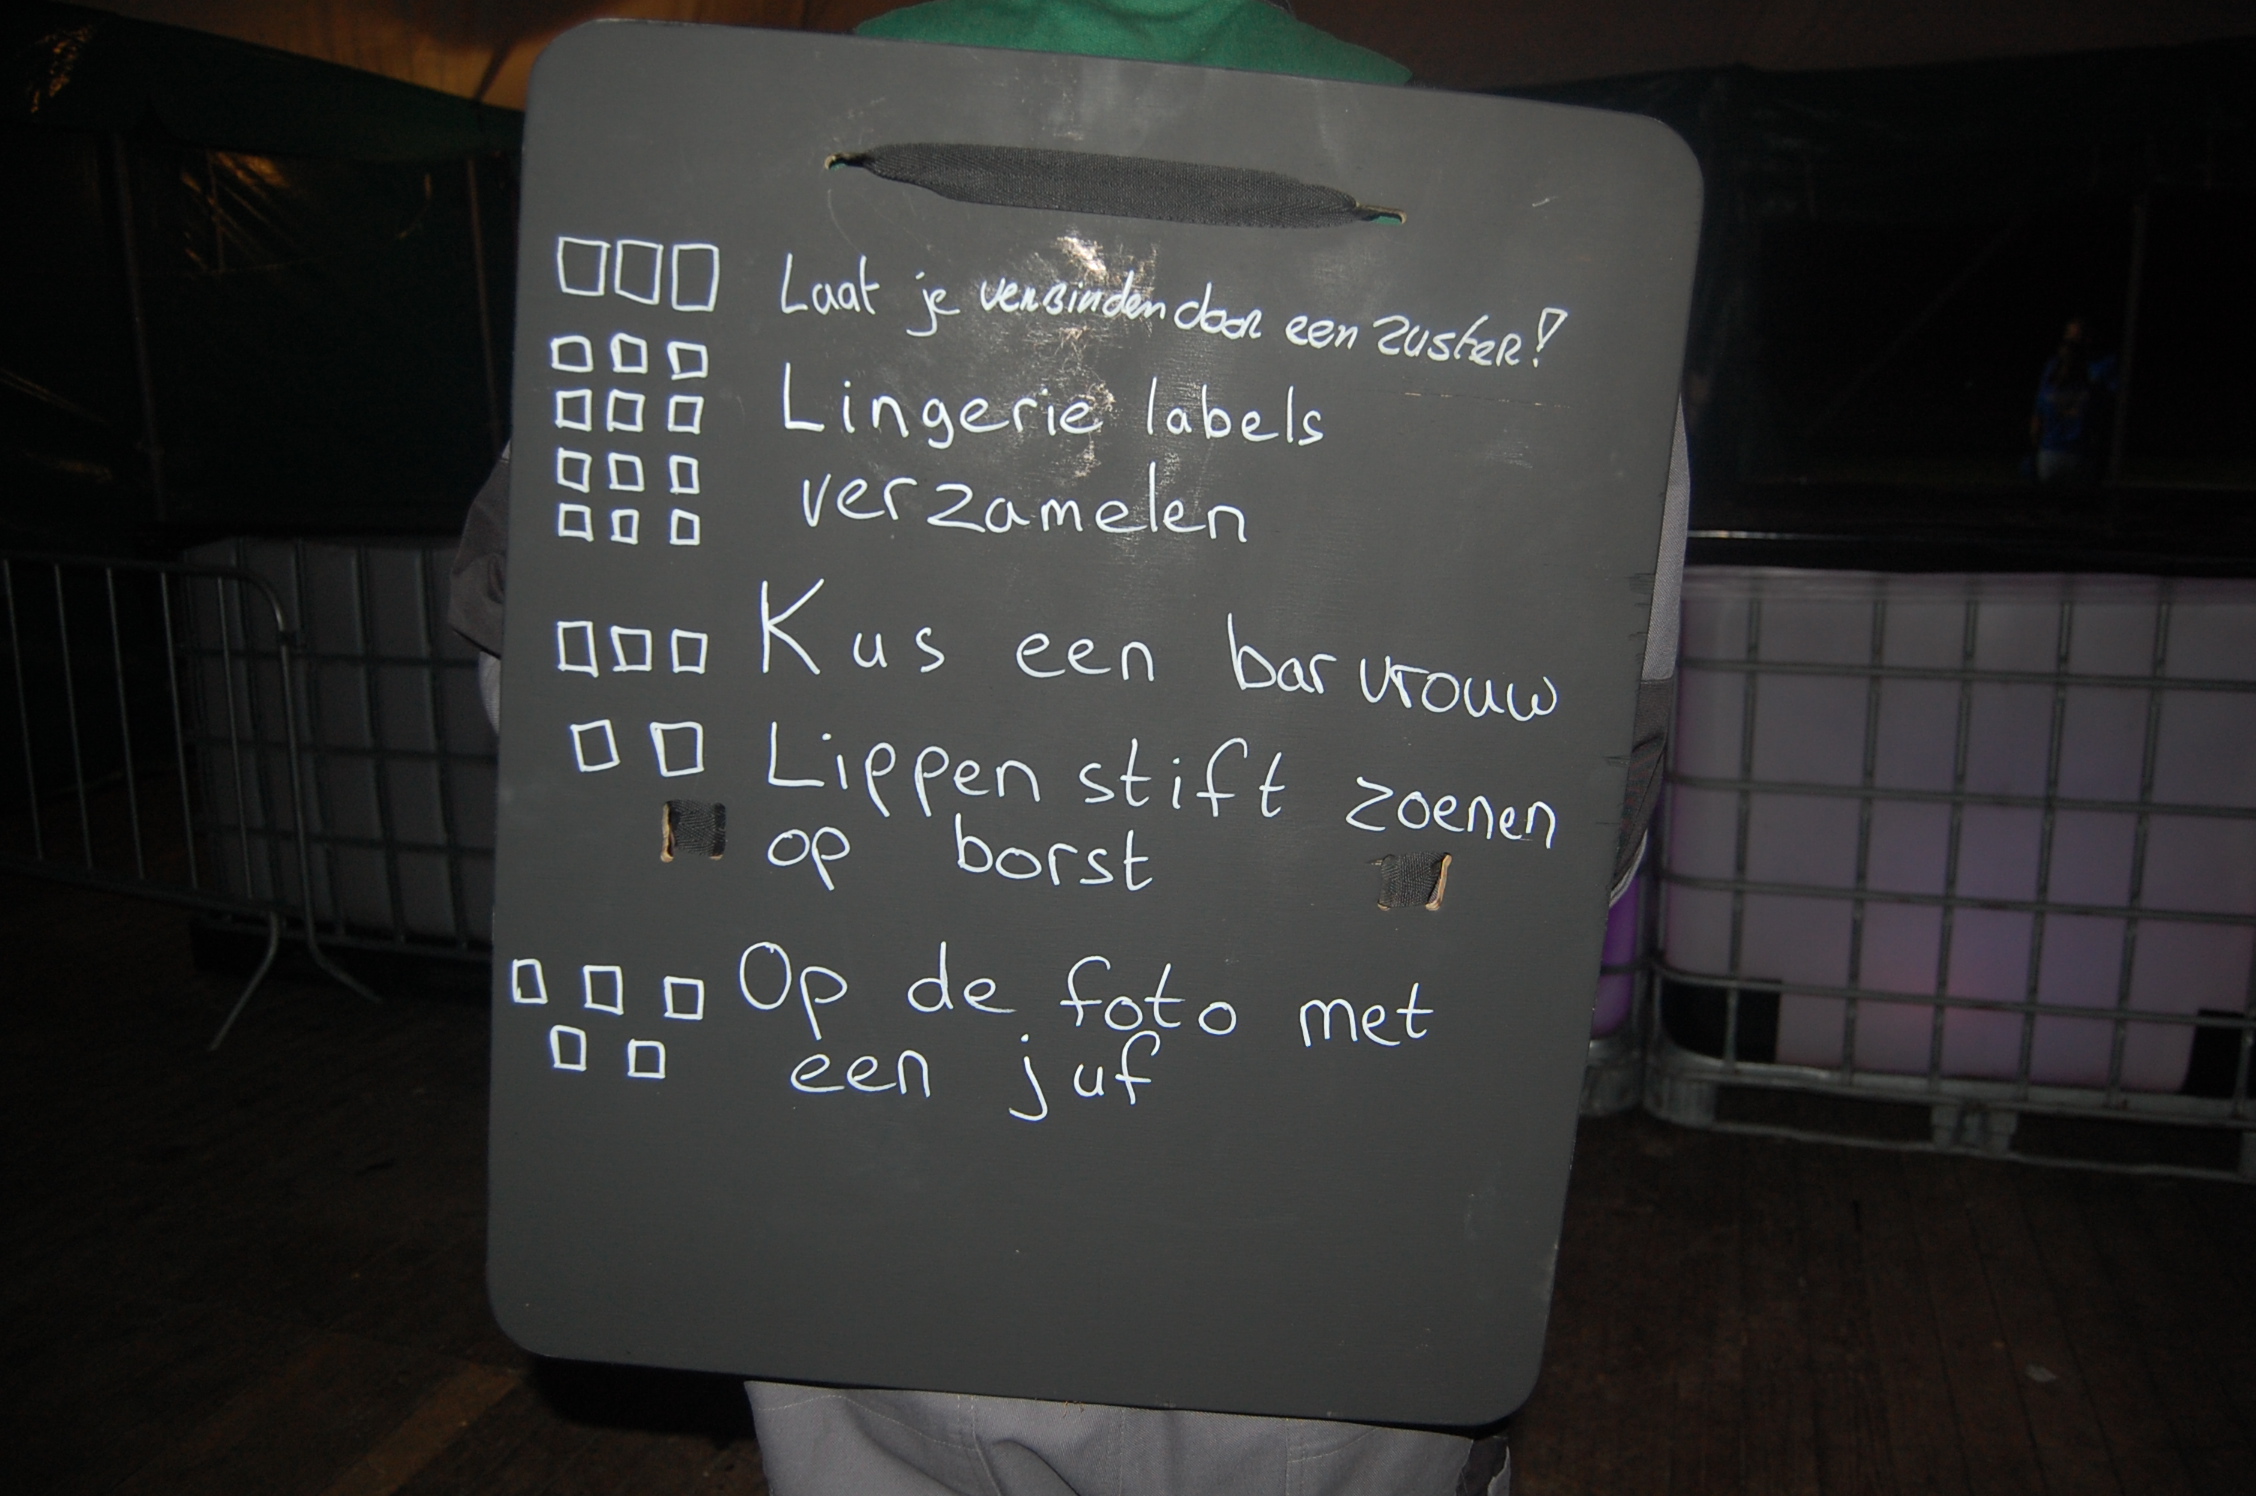 Laat je verbinden door een zuster!
Lingerie labels
verzamelen
Kus een barvrouw
Lippenstift zoenen
op borst
Op de foto met
een juf